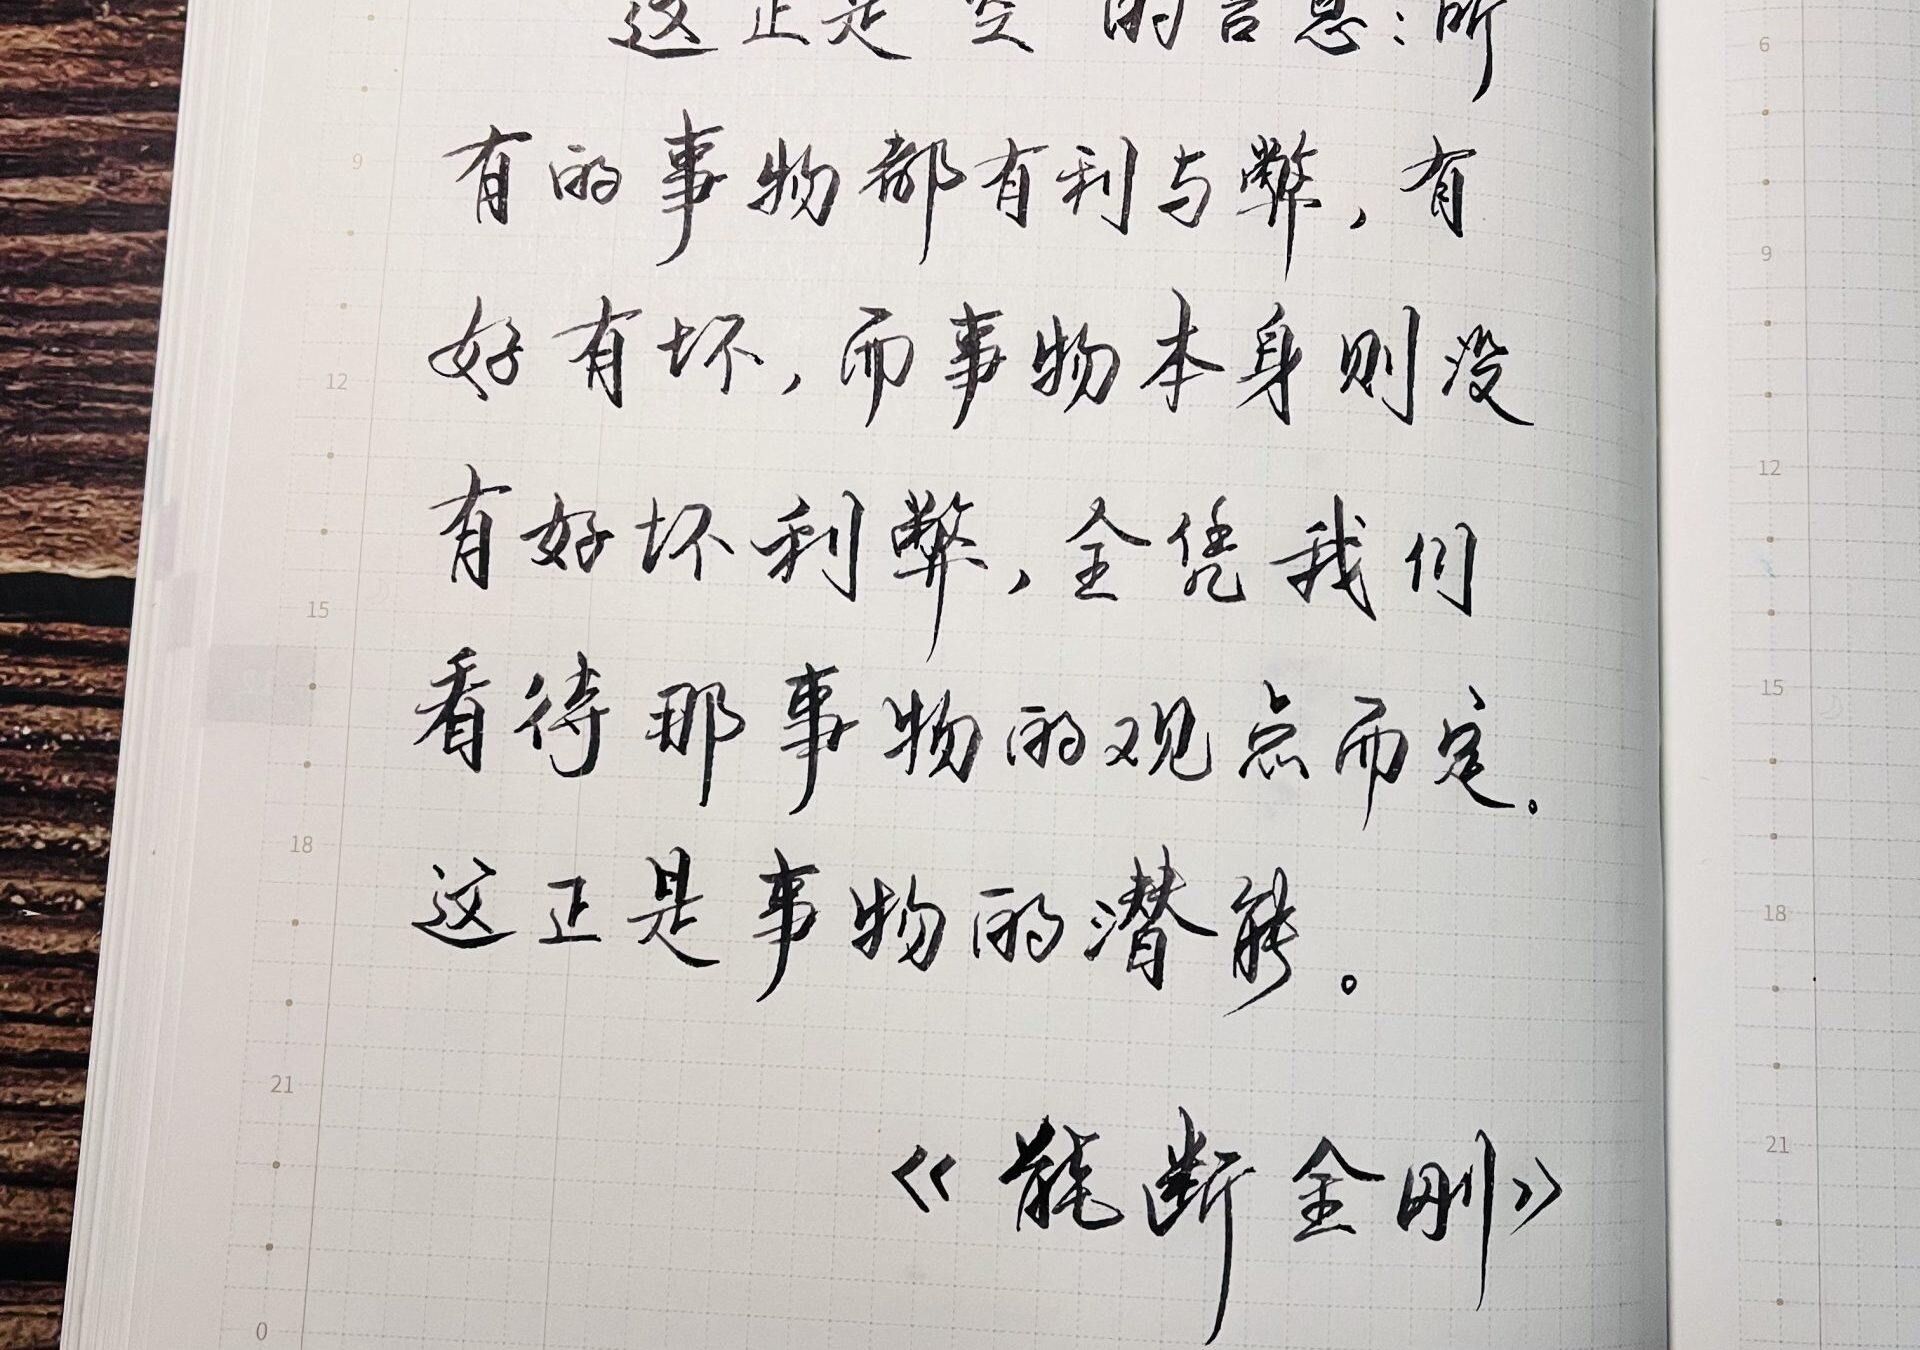 这正是“空”的：所
有的事物都有利与弊，有
好有坏，而事物本身则没
有好坏利弊，全凭我们
看待那事物的观点而定。
这正是事物的潜能。
《能断金刚》
9
12
15
18
21
0
6
9
12
15
18
21